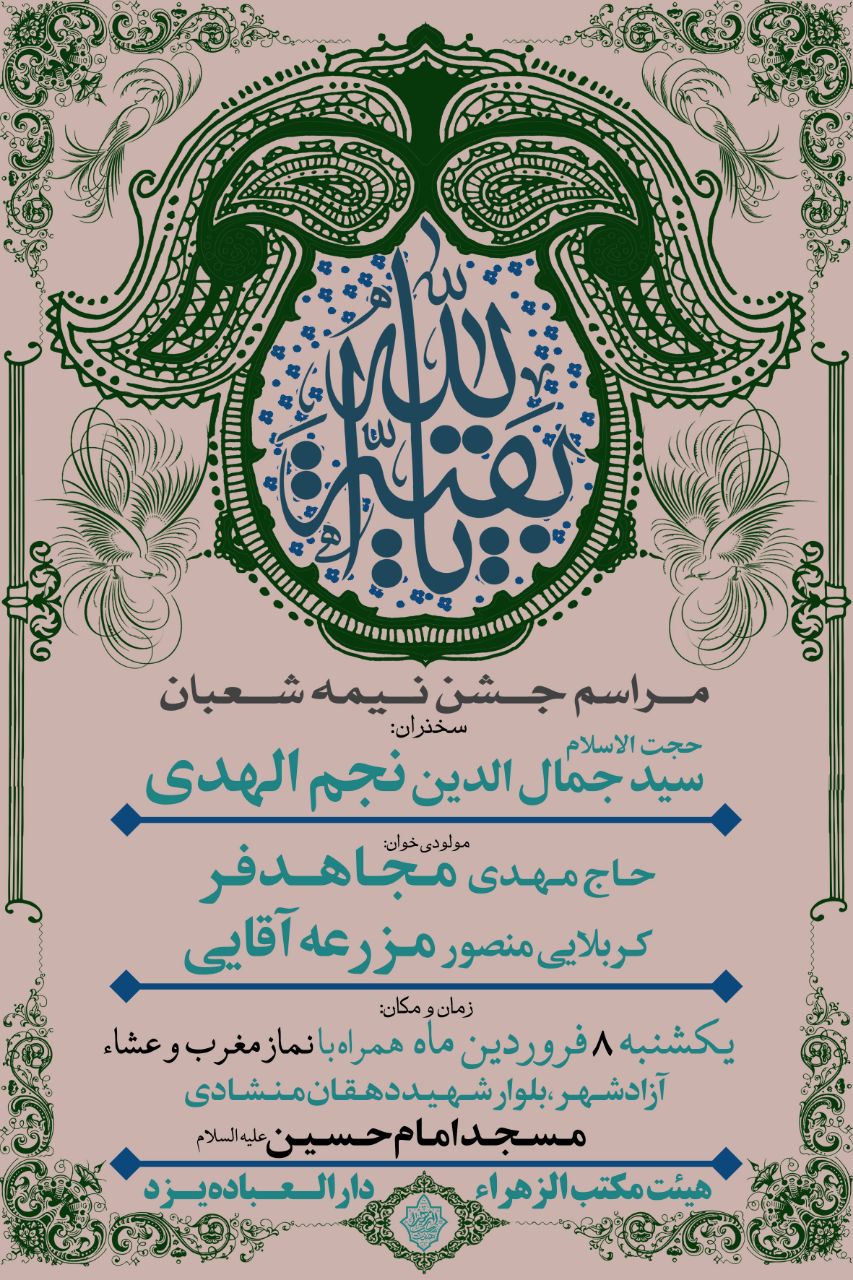 یا بقیة الله
مراسم جشن نیمه شعبان
سخنران:
حجت الاسلام
سید جمال الدین نجم الهدی
مولودی خوان:
حاج مهدی مجاهدفر
کربلایی منصور مزرعه آقایی
زمان و مکان:
یکشنبه ۸ فروردین ماه همراه با نماز مغرب و عشاء
آزادشهر، بلوار شهید دهقان منشادی
مسجد امام حسین علیه السلام
هیئت مکتب الزهراء دارالعباده یزد